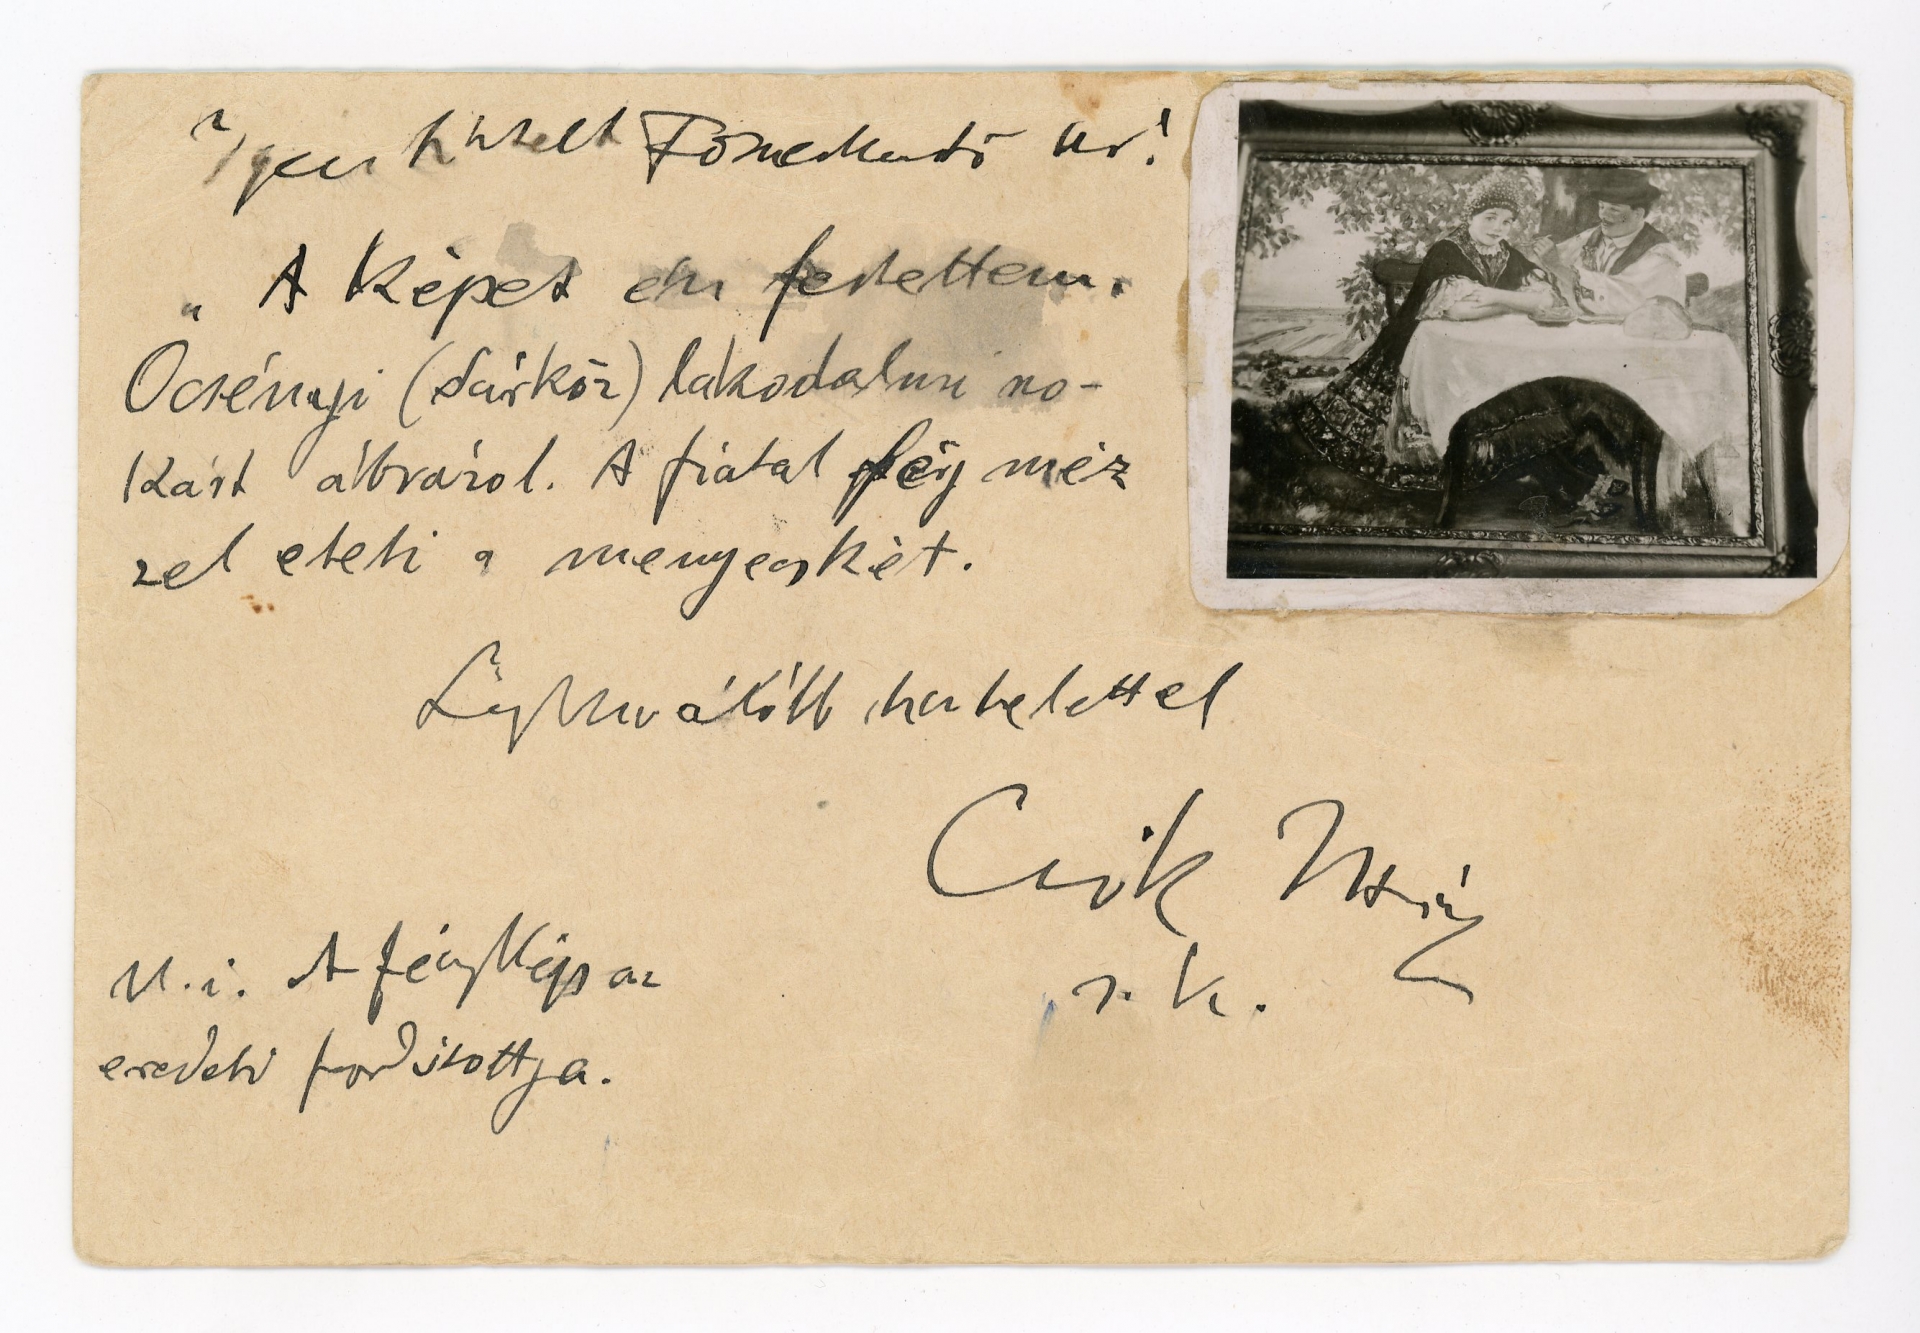 Igen tisztelt Főszerkesztő Úr!
„A képet én festettem.
Őcsényi (Sárköz) lakodalmi szo-
kást ábrázol. A fiatal férj méz
zel eteti a menyecskét.
Legkiválóbb tisztelettel
Csók István
s. k.
U.i. A fénykép az
eredeti fordítottja.